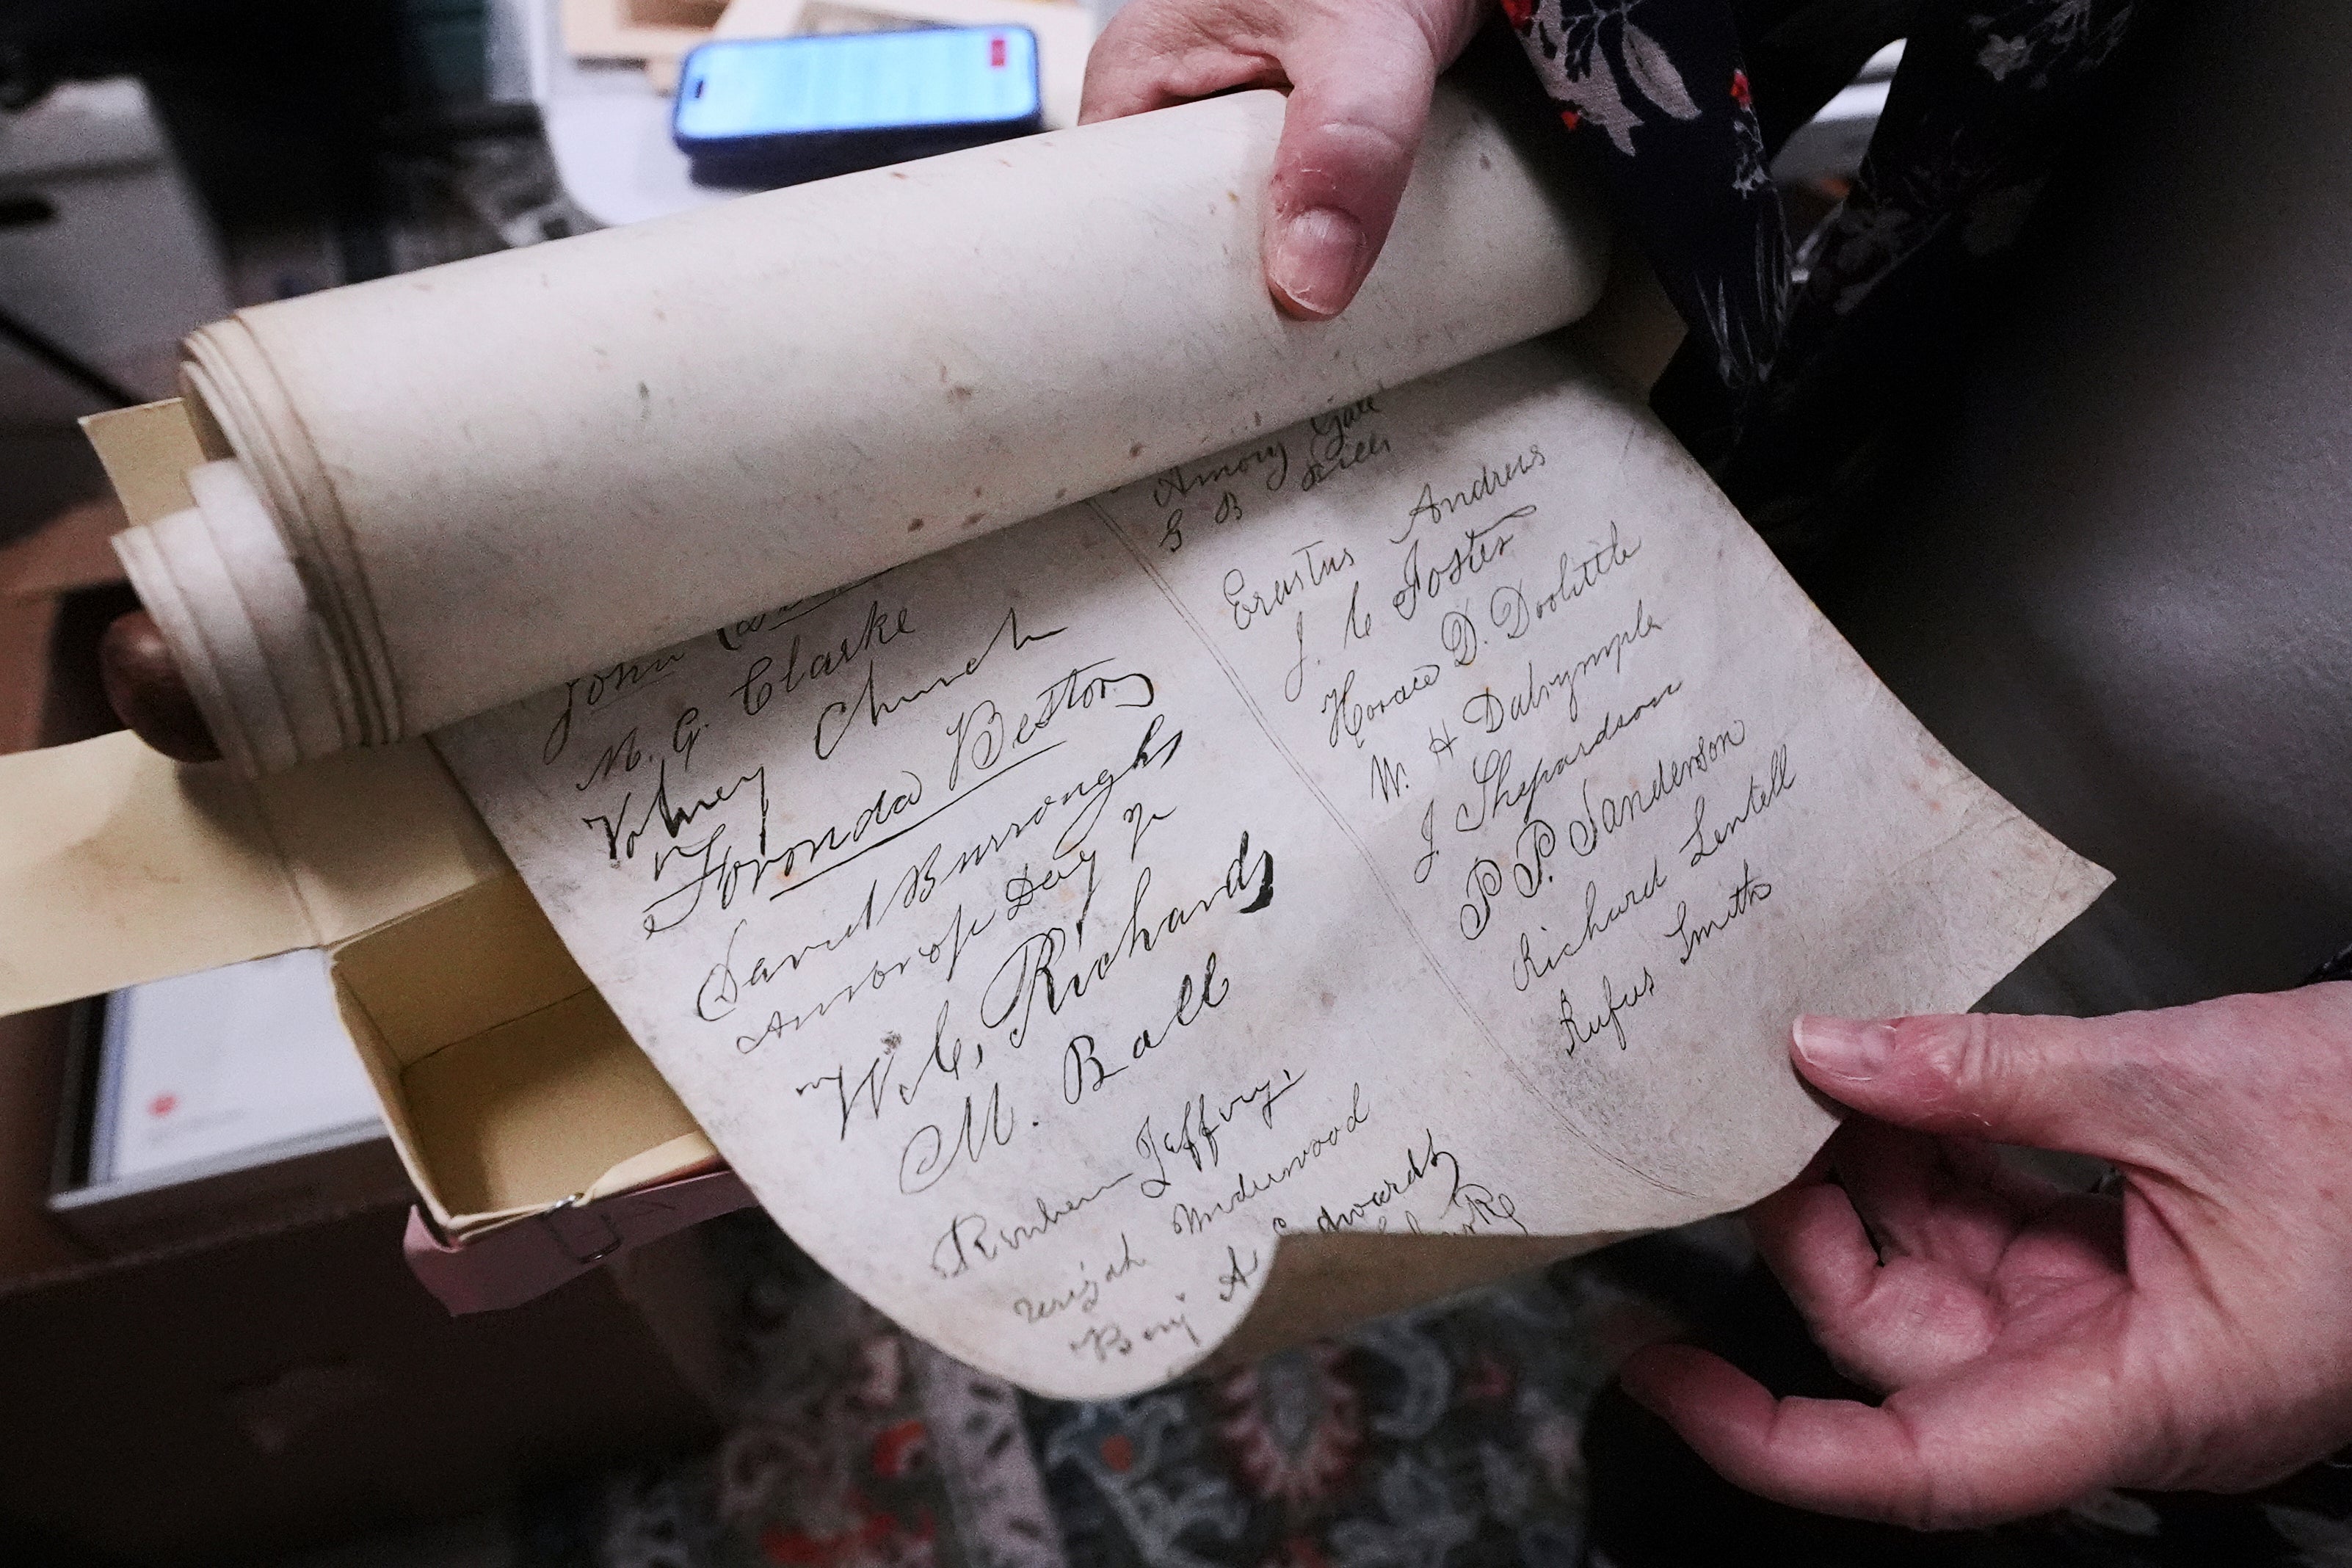 John
M. G. Clarke
Volney Church
Foronda Bestor
David Burroughs
Ambrose Day Jr
W. C. Richards
M. Ball
Reuben Jeffrey.
Urijah Underwood
Benj A Edwards
Amory Gale
G B
Erastus Andrews
J. C Foster
Horace D. Doolittle
W. H Dalrymple
J Shepardson
P. P. Sanderson
Richard Lentell
Rufus Smith